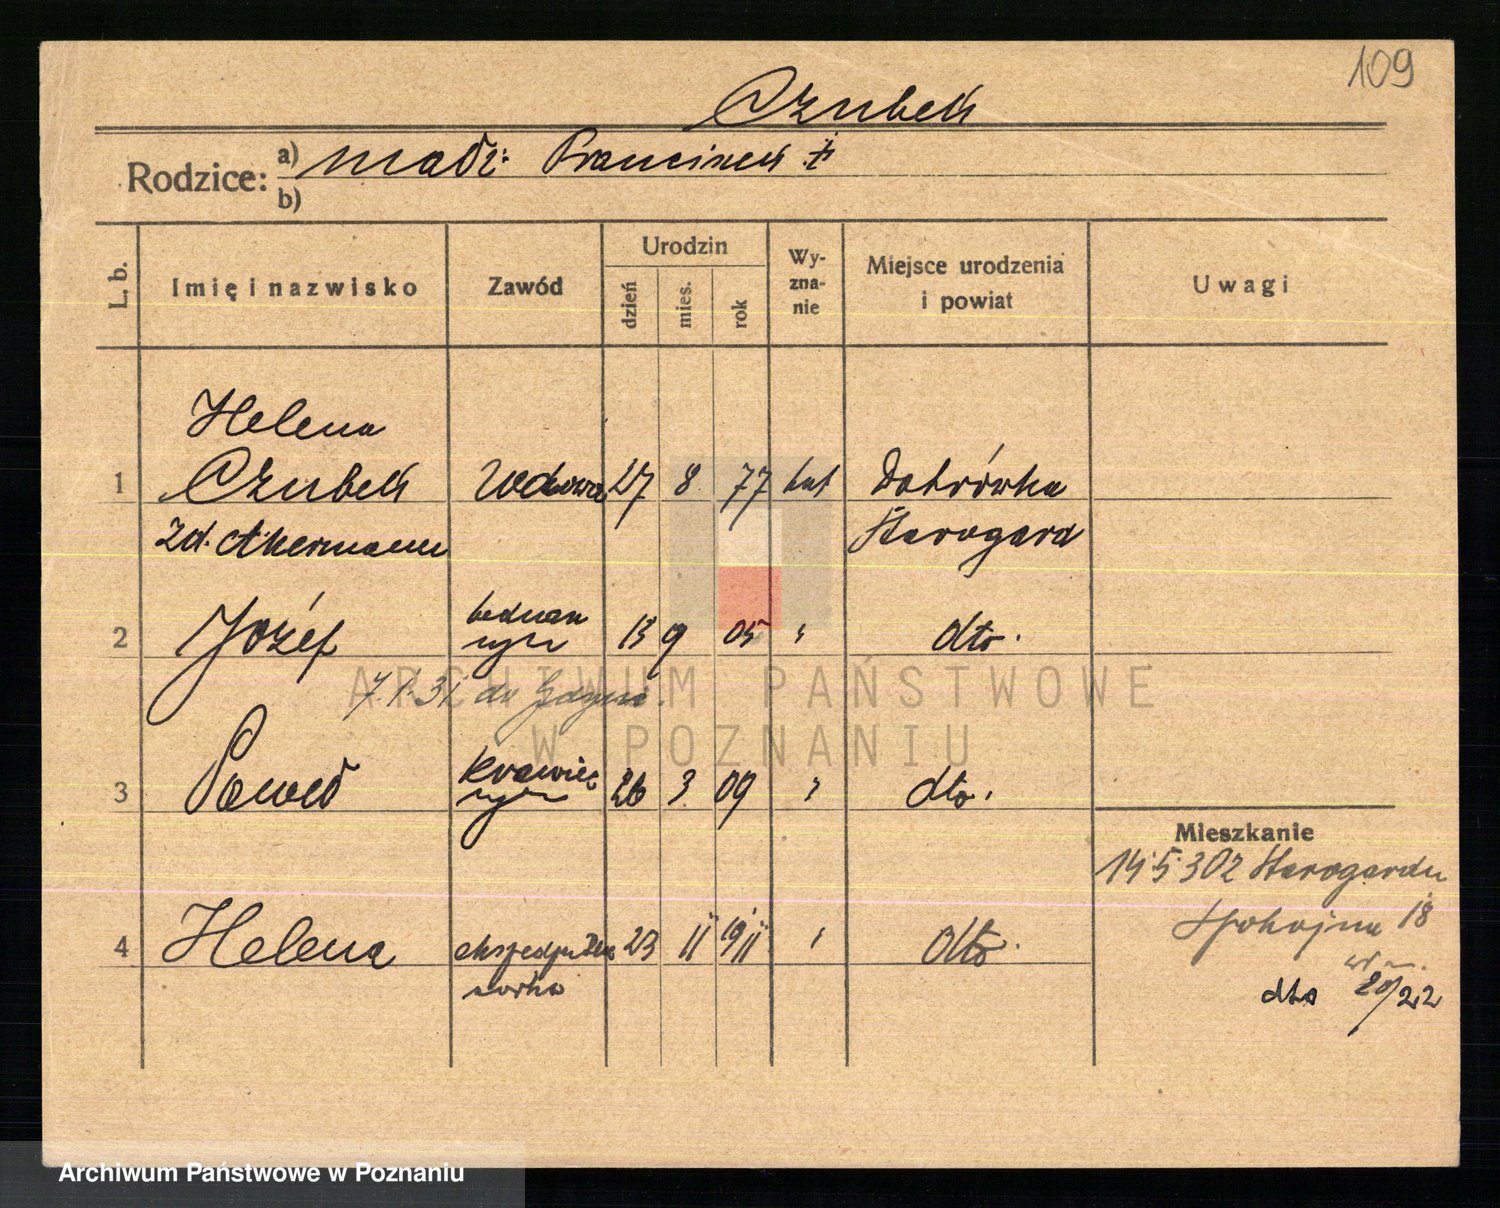 109
Czubek
Rodzice: a) małż: Franciszek †
b)
L. b. Imię i nazwisko Zawód Urodzin dzień mies. rok Wy-zna-nie Miejsce urodzenia i powiat Uwagi
Helena
1 Czubek Wdowa 27 8 77 kat Dąbrówka
zd. Akermann Starogard
2 Józef bednar 13 9 05 " dto.
7.1.31 do Gdyni.
3 Paweł krawiec 26 3 09 " dto.
Mieszkanie
14.5.302 Starogard
4 Helena 23 11 1911 " dto.
Spokojna 18
dto 20/22
ARCHIWUM PAŃSTWOWE
W POZNANIU
Archiwum Państwowe w Poznaniu